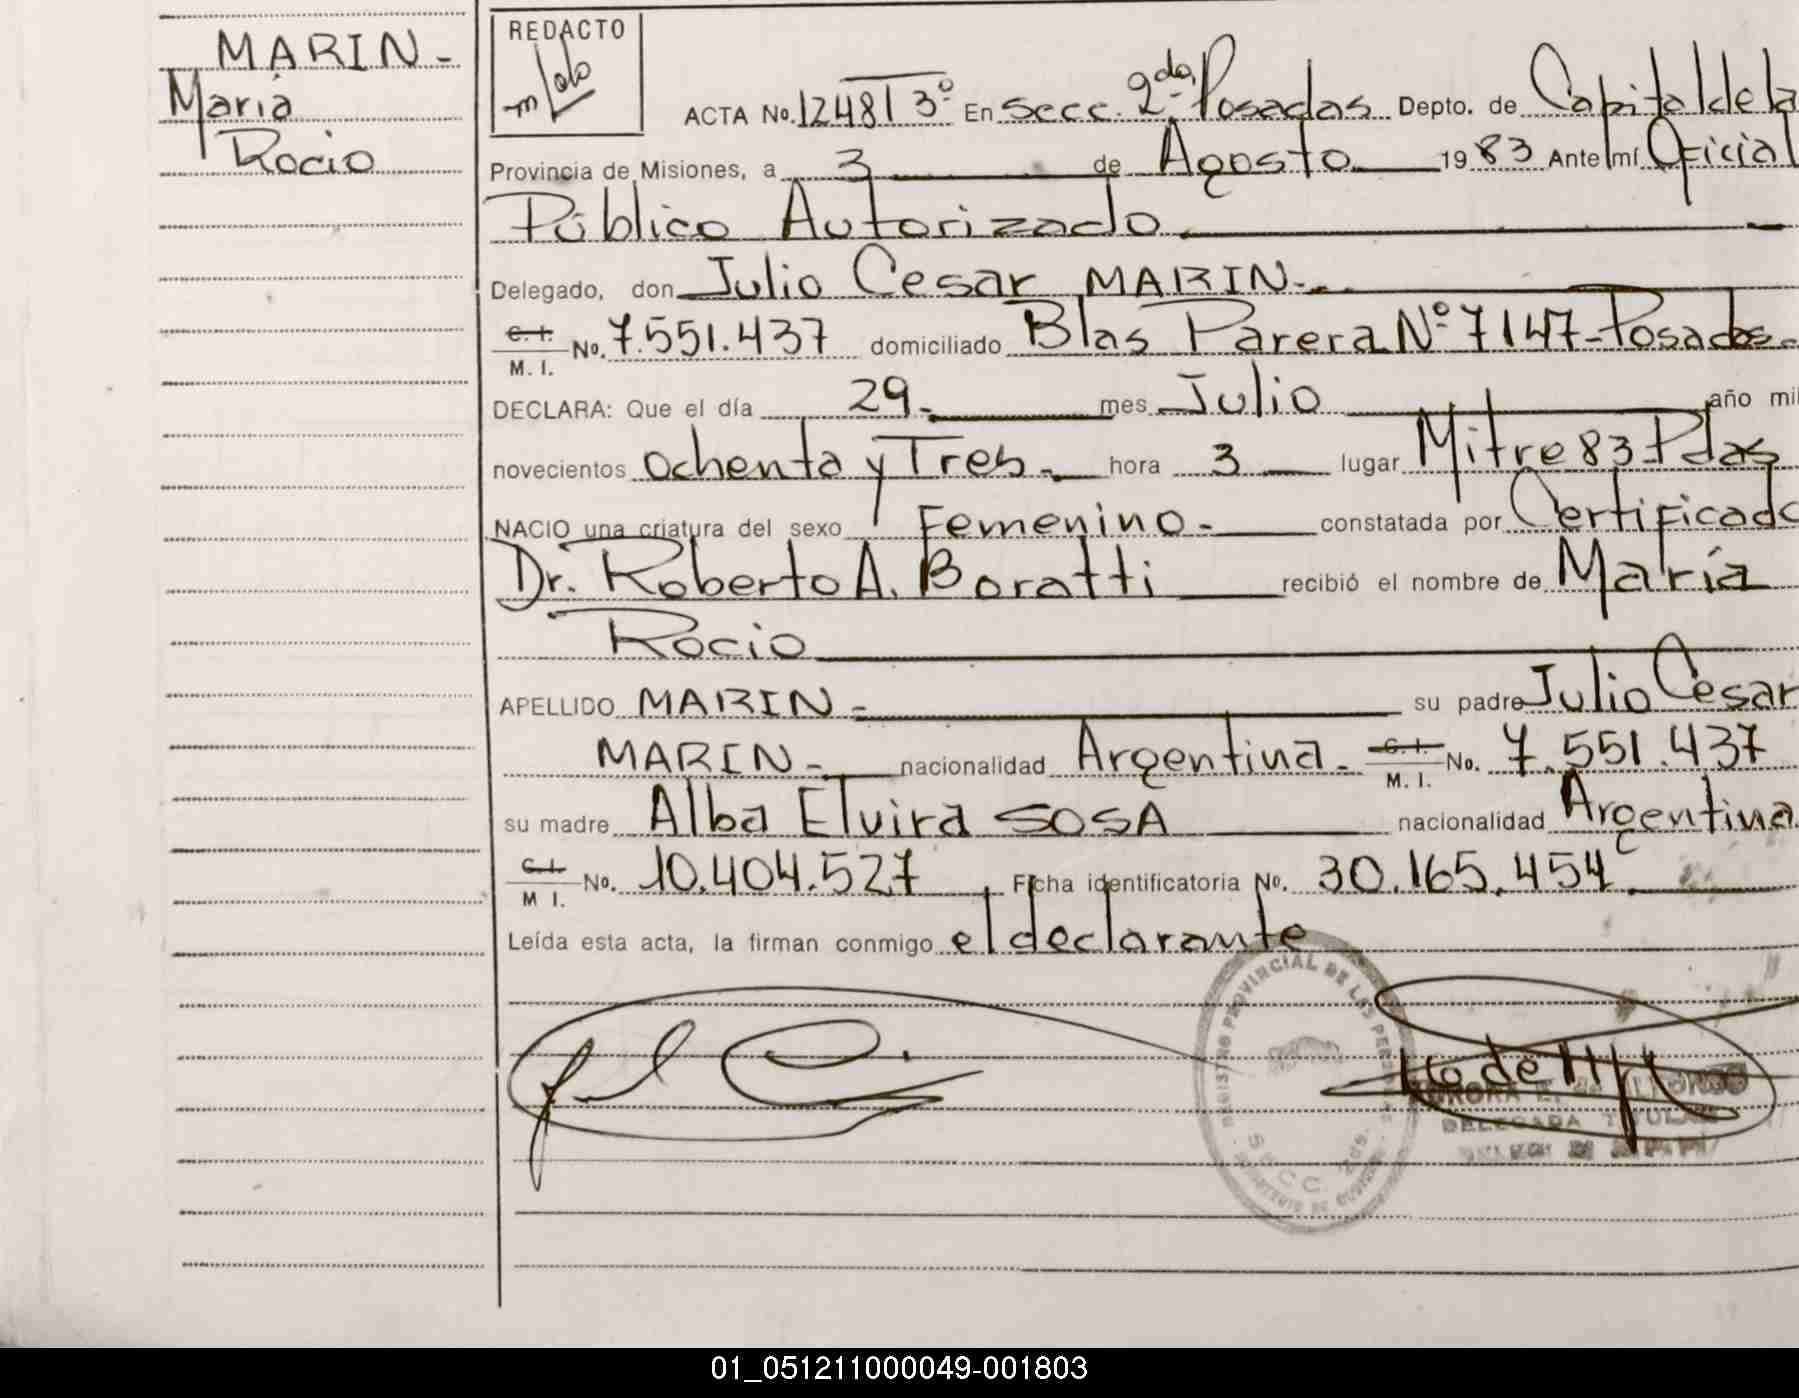 MARIN-
Maria
Rocio
REDACTO
ACTA No. 1248 T 3º En Secc. 2da. Posadas Depto. de Capital de la
Provincia de Misiones, a 3 de Agosto 1983 Ante mí Oficial
Público Autorizado
Delegado, don Julio Cesar MARIN-
C. I.
M. I. No. 7.551.437 domiciliado Blas Parera Nº 7147-Posadas-
DECLARA: Que el día 29- mes Julio año mil
novecientos ochenta y Tres- hora 3 lugar Mitre 83 Pdas
NACIO una criatura del sexo Femenino- constatada por Certificado
Dr. Roberto A. Boratti recibió el nombre de María
Rocio
APELLIDO MARIN- su padre Julio Cesar
MARIN- nacionalidad Argentina- C. I.
M. I. No. 7.551.437
su madre Alba Elvira SOSA nacionalidad Argentina
C. I.
M. I. No. 10.404.527 Ficha identificatoria No. 30.165.454
Leída esta acta, la firman conmigo el declarante
REGISTRO PROVINCIAL DE LAS PERSONAS
SECC. 2da.
DELEGADA TITULAR
01_051211000049-001803